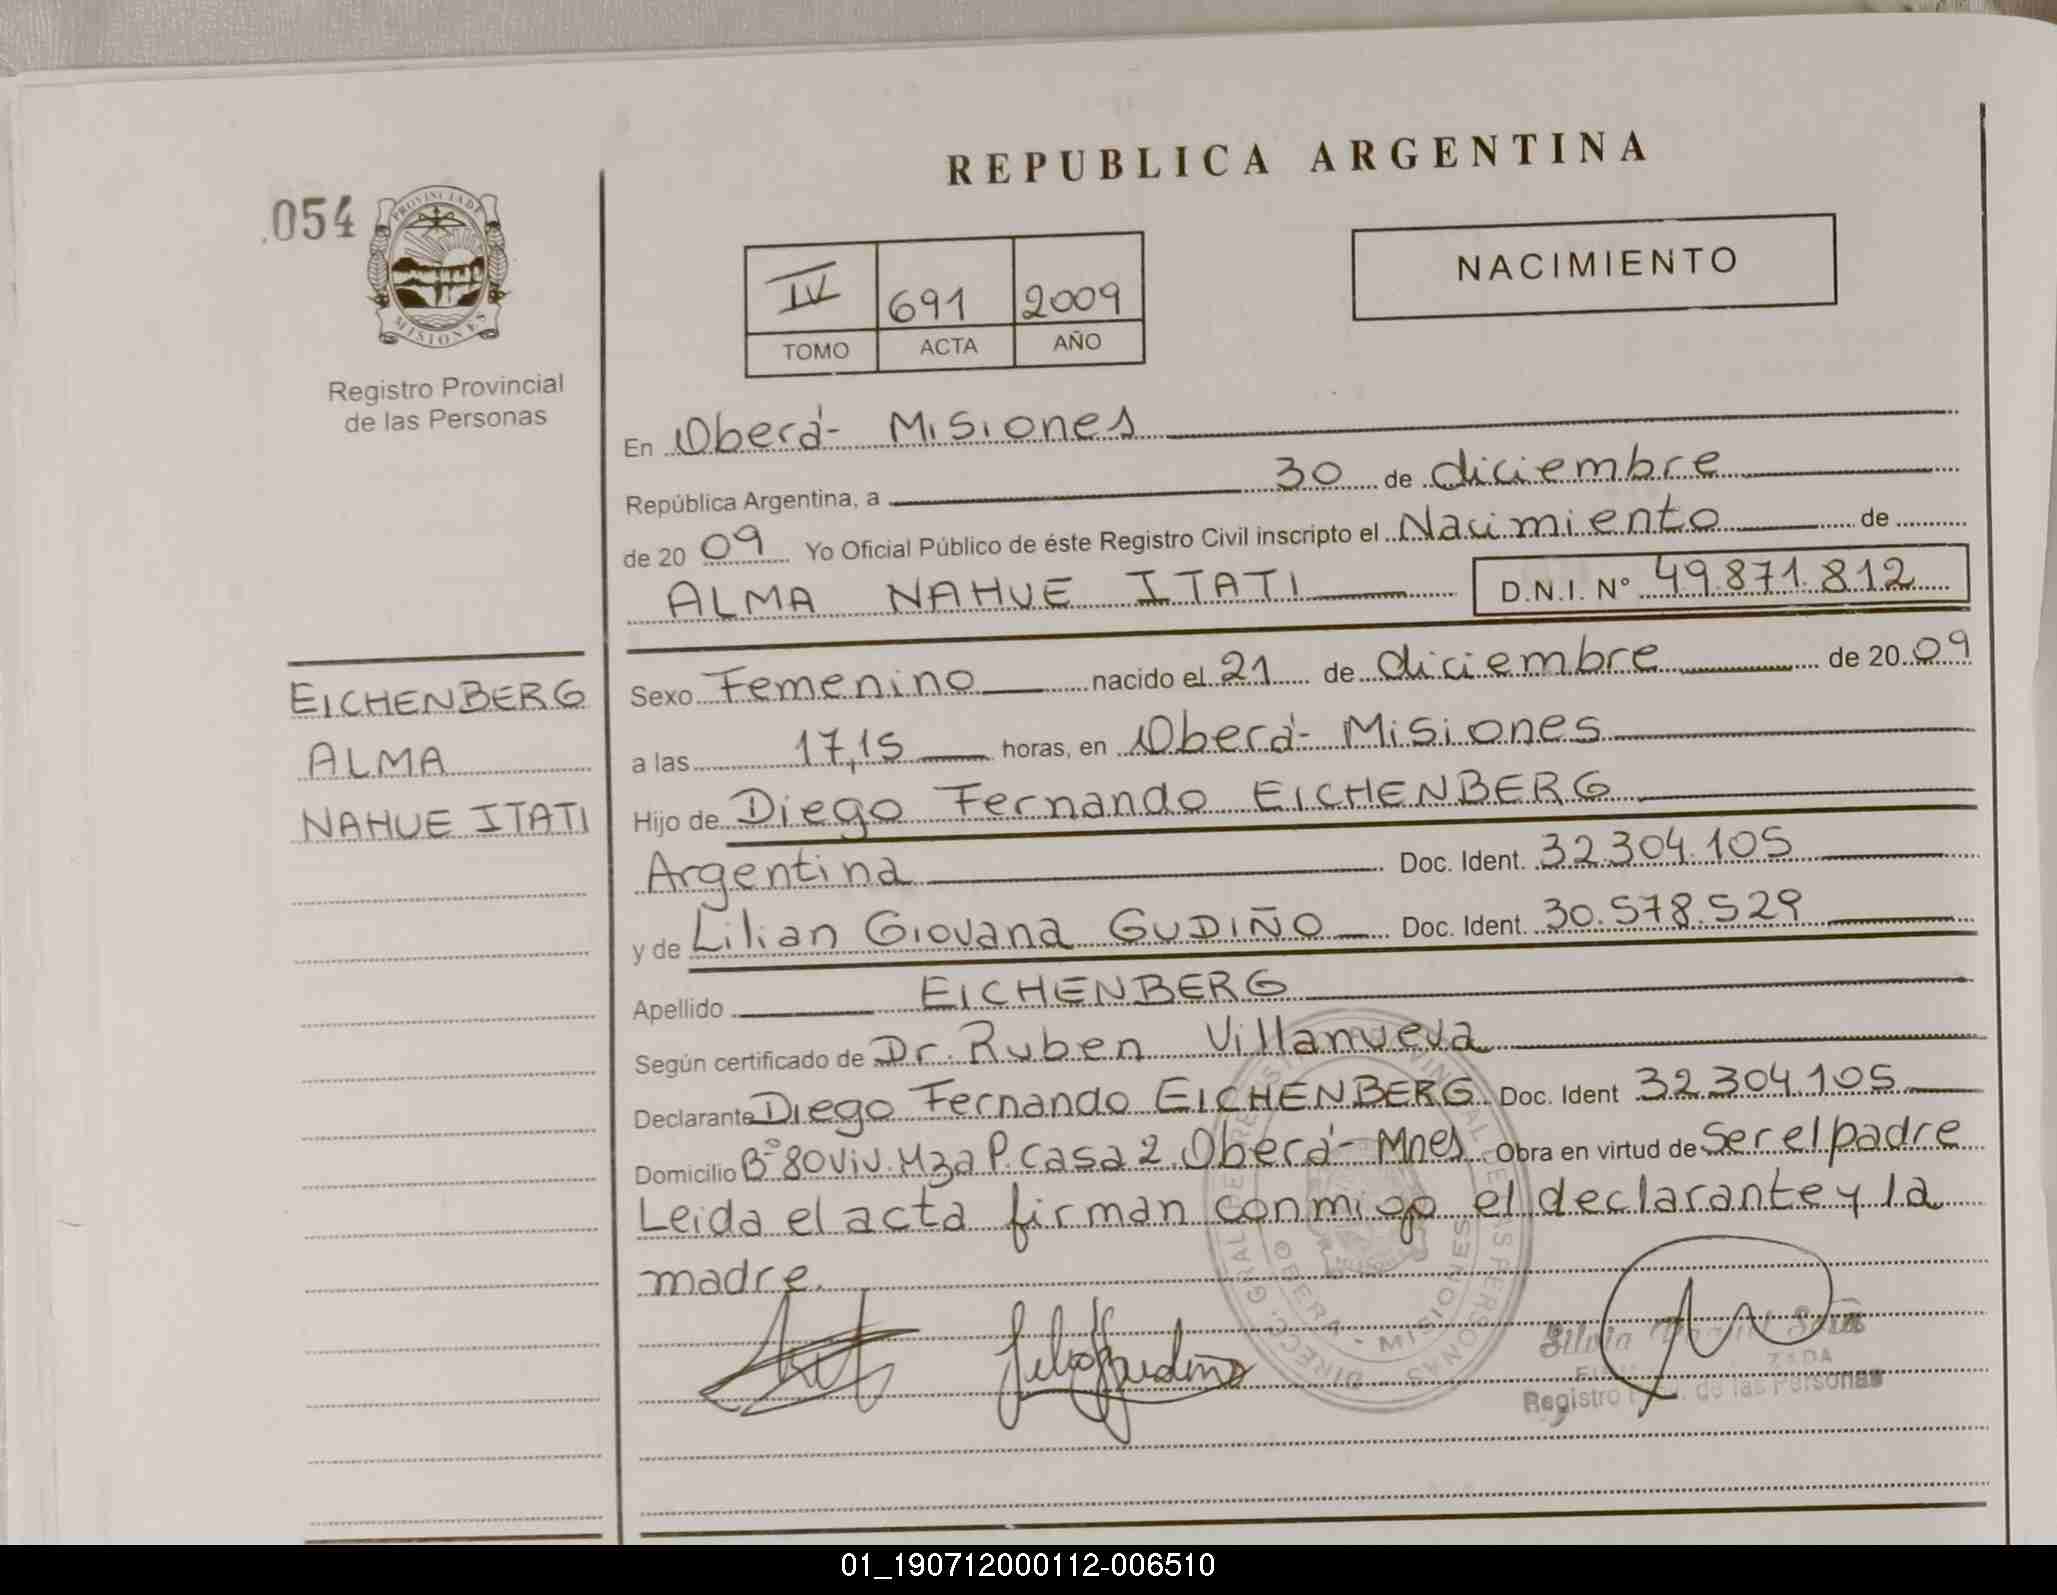 REPUBLICA ARGENTINA
.054
PROVINCIA DE
MISIONES
Registro Provincial
de las Personas
NACIMIENTO
IV 691 2009
TOMO ACTA AÑO
En Oberá- Misiones
República Argentina, a 30 de diciembre
de 2009 Yo Oficial Público de éste Registro Civil inscripto el Nacimiento de
ALMA NAHUE ITATI D.N.I. N° 49.871.812
EICHENBERG
ALMA
NAHUE ITATI
Sexo Femenino nacido el 21 de diciembre de 2009
a las 17,15 horas, en Oberá- Misiones
Hijo de Diego Fernando EICHENBERG
Argentina Doc. Ident. 32.304.105
y de Lilian Giovana GUDIÑO Doc. Ident. 30.578.529
Apellido EICHENBERG
Según certificado de Dr. Ruben Villanueva
Declarante Diego Fernando EICHENBERG Doc. Ident 32.304.105
Domicilio B° 80 Viv. Mza P. Casa 2 Oberá- Mnes Obra en virtud de Ser el padre
Leida el acta firman conmigo el declarante y la
madre.
OBERA - MISIONES
Silvia
Registro de las Personas
01_190712000112-006510